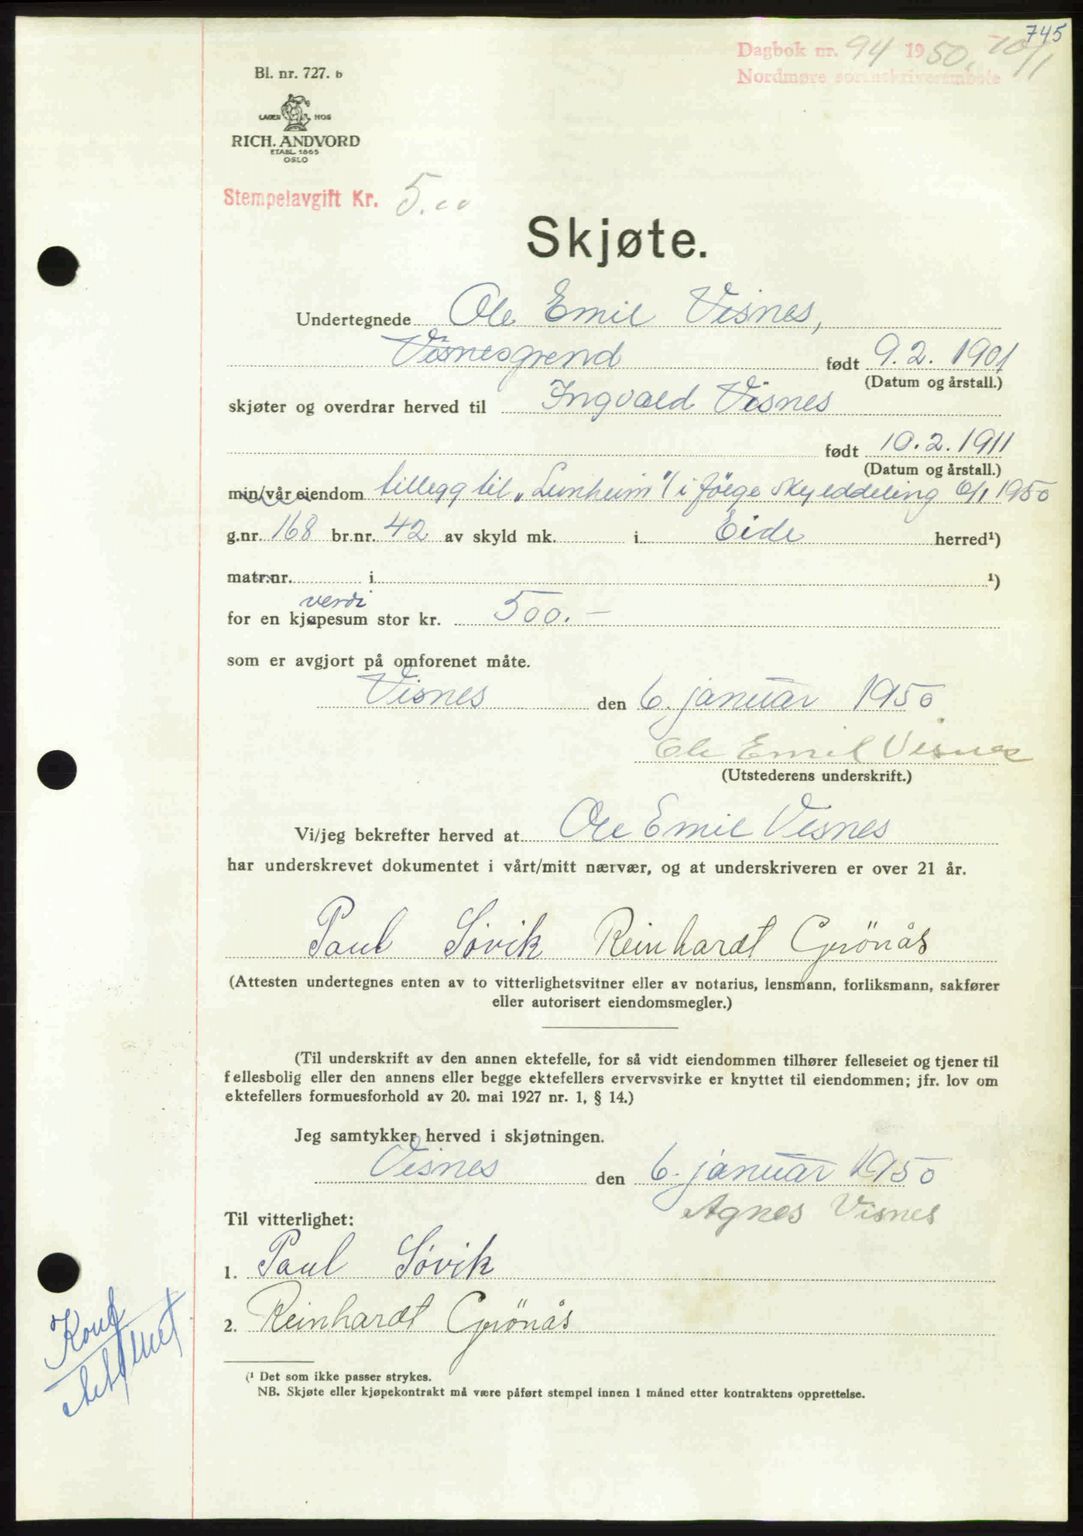 745
Dagbok nr. 94 1950. 10/1
Nordmøre sorenskriverembete
Bl. nr. 727. b
LAGER HOS
RICH. ANDVORD
ETABL. 1865
OSLO
Stempelavgift Kr. 5.00
Skjøte.
Undertegnede Ole Emil Visnes,
Visnesgrend født 9.2. 1901
(Datum og årstall.)
skjøter og overdrar herved til Ingvald Visnes
født 10.2.1911
(Datum og årstall.)
min/vår eiendom tillegg til „Lunheim" i følge skylddeling 6/1 1950
g.nr. 168 br.nr. 42 av skyld mk. i Eide herred¹)
matr.nr. i ¹)
verdi
for en kjøpesum stor kr. 500.-
som er avgjort på omforenet måte.
Visnes den 6. januar 1950
Ole Emil Visnes
(Utstederens underskrift.)
Vi/jeg bekrefter herved at Ole Emil Visnes
har underskrevet dokumentet i vårt/mitt nærvær, og at underskriveren er over 21 år.
Paul Søvik Reinhardt Grönås
(Attesten undertegnes enten av to vitterlighetsvitner eller av notarius, lensmann, forliksmann, sakfører
eller autorisert eiendomsmegler.)
(Til underskrift av den annen ektefelle, for så vidt eiendommen tilhører felleseiet og tjener til
fellesbolig eller den annens eller begge ektefellers ervervsvirke er knyttet til eiendommen; jfr. lov om
ektefellers formuesforhold av 20. mai 1927 nr. 1, § 14.)
Jeg samtykker herved i skjøtningen.
Visnes den 6. januar 1950
Agnes Visnes
Til vitterlighet:
1. Paul Søvik
2. Reinhardt Grönås
(¹ Det som ikke passer strykes.
NB. Skjøte eller kjøpekontrakt må være påført stempel innen 1 måned etter kontraktens opprettelse.